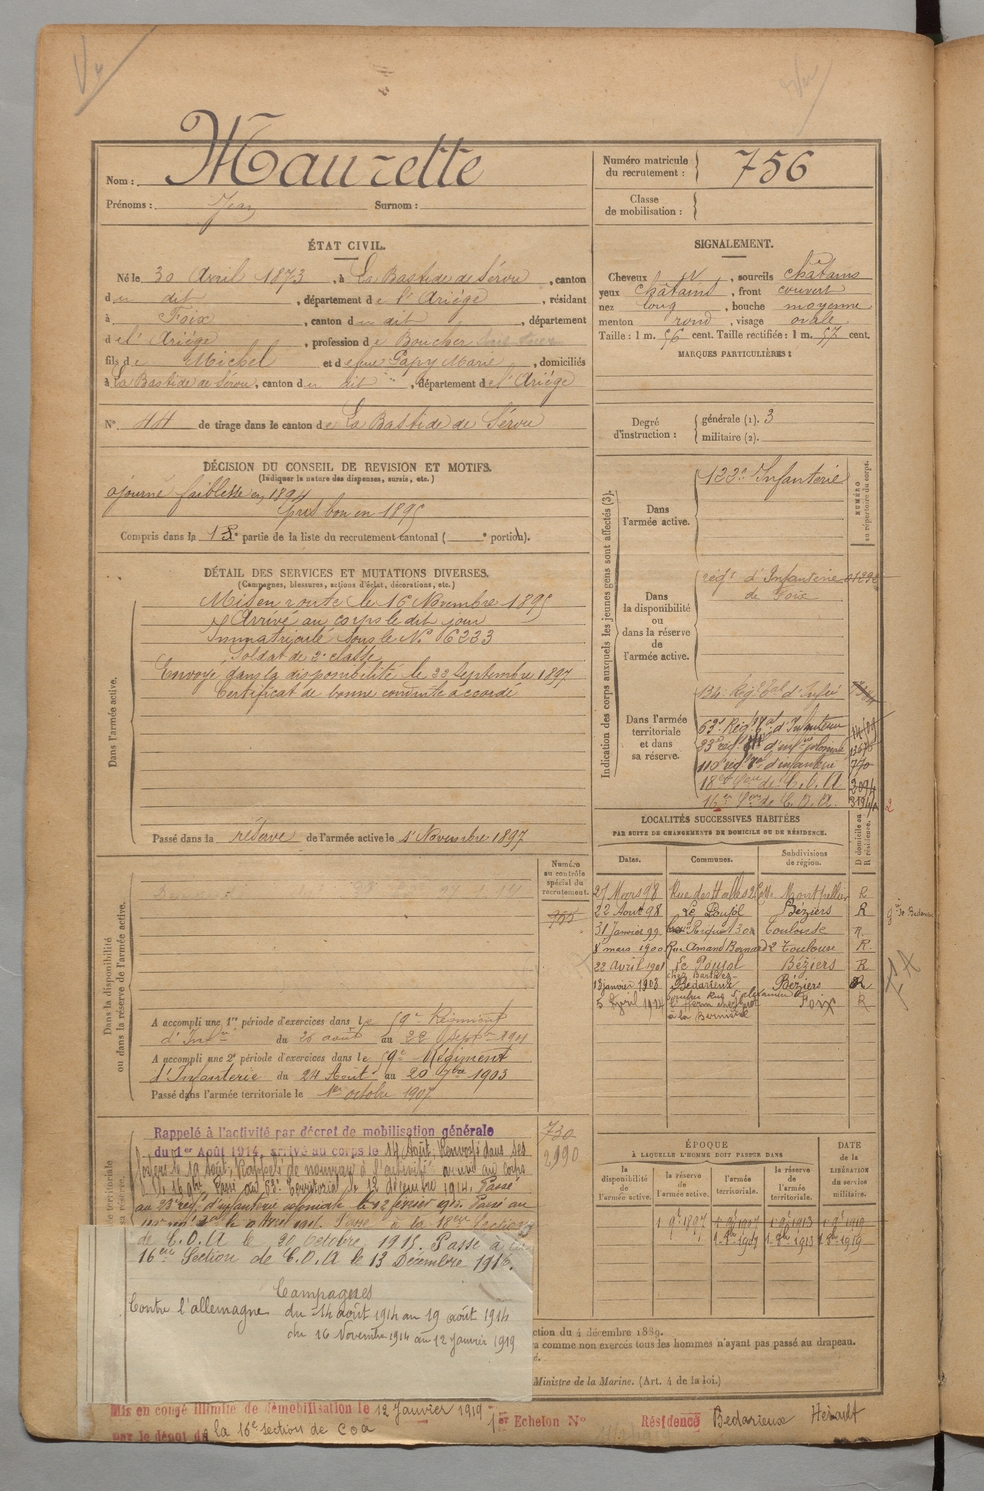 Nom : Maurette
Prénoms : Jean Surnom :
Numéro matricule du recrutement : 756
Classe de mobilisation :
ÉTAT CIVIL.
Né le 30 Avril 1873, à La Bastide de Sérou, canton
du dit, département de l'Ariége, résidant
à Foix, canton du dit, département
de l'Ariége, profession de Boucher
fils de Michel et de feue Papy Marie, domiciliés
à La Bastide de Sérou, canton du dit, département de l'Ariége
N° 44 de tirage dans le canton de La Bastide de Sérou
SIGNALEMENT.
Cheveux , sourcils châtains
yeux châtains, front couvert
nez long, bouche moyenne
menton rond, visage ovale
Taille : 1 m. 56 cent. Taille rectifiée : 1 m. 57 cent.
MARQUES PARTICULIÈRES :
Degré d'instruction : générale (1). 3
militaire (2).
DÉCISION DU CONSEIL DE REVISION ET MOTIFS.
(Indiquer la nature des dispenses, sursis, etc.)
ajourné faiblesse en 1894
pris bon en 1895
Compris dans la partie de la liste du recrutement cantonal ( e portion).
DÉTAIL DES SERVICES ET MUTATIONS DIVERSES.
(Campagnes, blessures, actions d'éclat, décorations, etc.)
Dans l'armée active.
Mis en route le 16 Novembre 1895
Arrivé au corps le dit jour
Immatriculé sous le N° 6233
Soldat de 2e classe
Envoyé dans la disponibilité le 22 Septembre 1897
Certificat de bonne conduite accordé
Passé dans la réserve de l'armée active le 1er Novembre 1897
Indication des corps auxquels les jeunes gens sont affectés (3).
NUMÉRO au répertoire du corps.
Dans l'armée active.
122e Infanterie
Dans la disponibilité ou dans la réserve de l'armée active.
régt d'Infanterie
de Foix
Dans l'armée territoriale et dans sa réserve.
134e Régt Tal d'Infie
63e Régt Tal d'Infanterie
23e régt d'infrie coloniale
110e régt Tal d'infanterie 770
18e Son de C.O.A 3094
16e Son de C.O.A.
LOCALITÉS SUCCESSIVES HABITÉES
PAR SUITE DE CHANGEMENTS DE DOMICILE OU DE RÉSIDENCE.
Dates. Communes. Subdivisions de région. D domicile ou R résidence.
27 Mars 98 Rue des Halles Montpellier R
22 Août 98 Le Poujol Béziers R
31 Janvier 99 Toulouse R.
8 mars 1900 Rue Amand Bernard 2 Toulouse R.
22 avril 1901 Le Poujol Béziers R
13 janvier 1903 Bédarieux Béziers R
5 Avril 1914 Foix R
Dans la disponibilité ou dans la réserve de l'armée active.
Numéro au contrôle spécial du recrutement.
955
A accompli une 1re période d'exercices dans le 59e Régiment
d'Infrie du 26 août au 22 Sept 1901
A accompli une 2e période d'exercices dans le 59e Régiment
d'Infanterie du 24 Août au 20 7bre 1903
Passé dans l'armée territoriale le 1er octobre 1907
730
2990
Rappelé à l'activité par décret de mobilisation générale
du 1er Août 1914, arrivé au corps le 14 Août. Renvoyé dans ses
foyers le 19 août. Rappelé de nouveau à l'activité arrivé au corps
le 16 9bre. Passé au 63e Territorial le 12 décembre 1914. Passé
au 23e régt d'infanterie coloniale le 12 février 1915. Passé au
Passé à la 18e Section
de C.O.A le 30 Octobre 1915. Passé à la
16eme Section de C.O.A le 13 Décembre 1916.
Campagnes
Contre l'allemagne du 14 août 1914 au 19 août 1914
du 16 Novembre 1914 au 12 Janvier 1919
ÉPOQUE
A LAQUELLE L'HOMME DOIT PASSER DANS
DATE de la LIBÉRATION du service militaire.
la disponibilité de l'armée active. la réserve de l'armée active. l'armée territoriale. la réserve de l'armée territoriale.
1. 9bre 1897 1. 9bre 1907 1. 9bre 1913 1. 9bre 1919
1. 8bre 1907 1. 8bre 1913 1. 8bre 1919
ction du 4 décembre 1889.
a comme non exercés tous les hommes n'ayant pas passé au drapeau.
Ministre de la Marine. (Art. 4 de la loi.)
Mis en congé illimité de démobilisation le 12 Janvier 1919 1er Echelon N° Résidence Bédarieux Hérault
par le dépôt de la 16e section de Coa